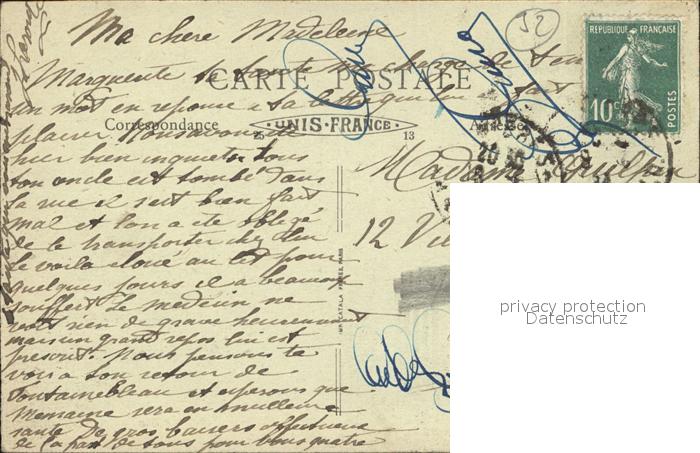 Ma chere Madeleine
Marguerite ta tante me charge de
un mot en reponse a ta lettre qui lui a fait
plaisir Nous avons ete
hier bien inquiets tous
ton oncle est tombé dans
la rue il s'est bien fait
mal et l'on a ete obligé
de le transporter chez lui
le voila cloué au lit pour
quelques jours il a beaucoup
souffert Le medecin ne
voit rien de grave heureusement
mais un grand repos lui est
prescrit. Nous pensons te
voir a ton retour de
Fontainebleau et esperons que
Memaine sera en meilleure
santé De gros baisers affectueux
de la part de tous pour vous quatre
CARTE POSTALE
Correspondance
UNIS-FRANCE
25
13
Adresse
Madame
12
52
REPUBLIQUE FRANÇAISE
10c
POSTES
privacy protection
Datenschutz